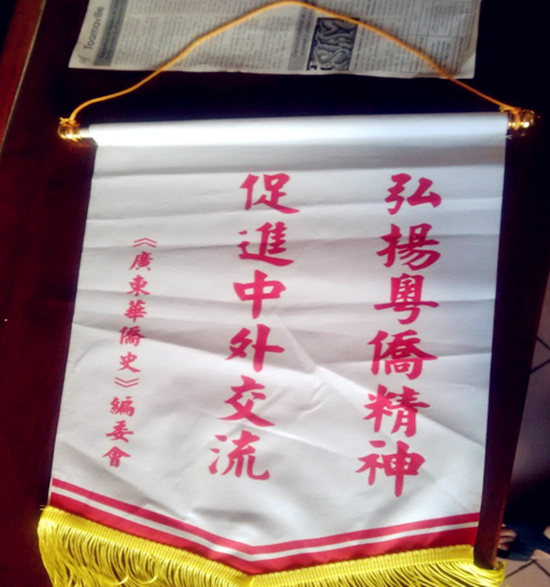 弘揚粵僑精神
促進中外交流
《廣東華僑史》編委會
Toamaville